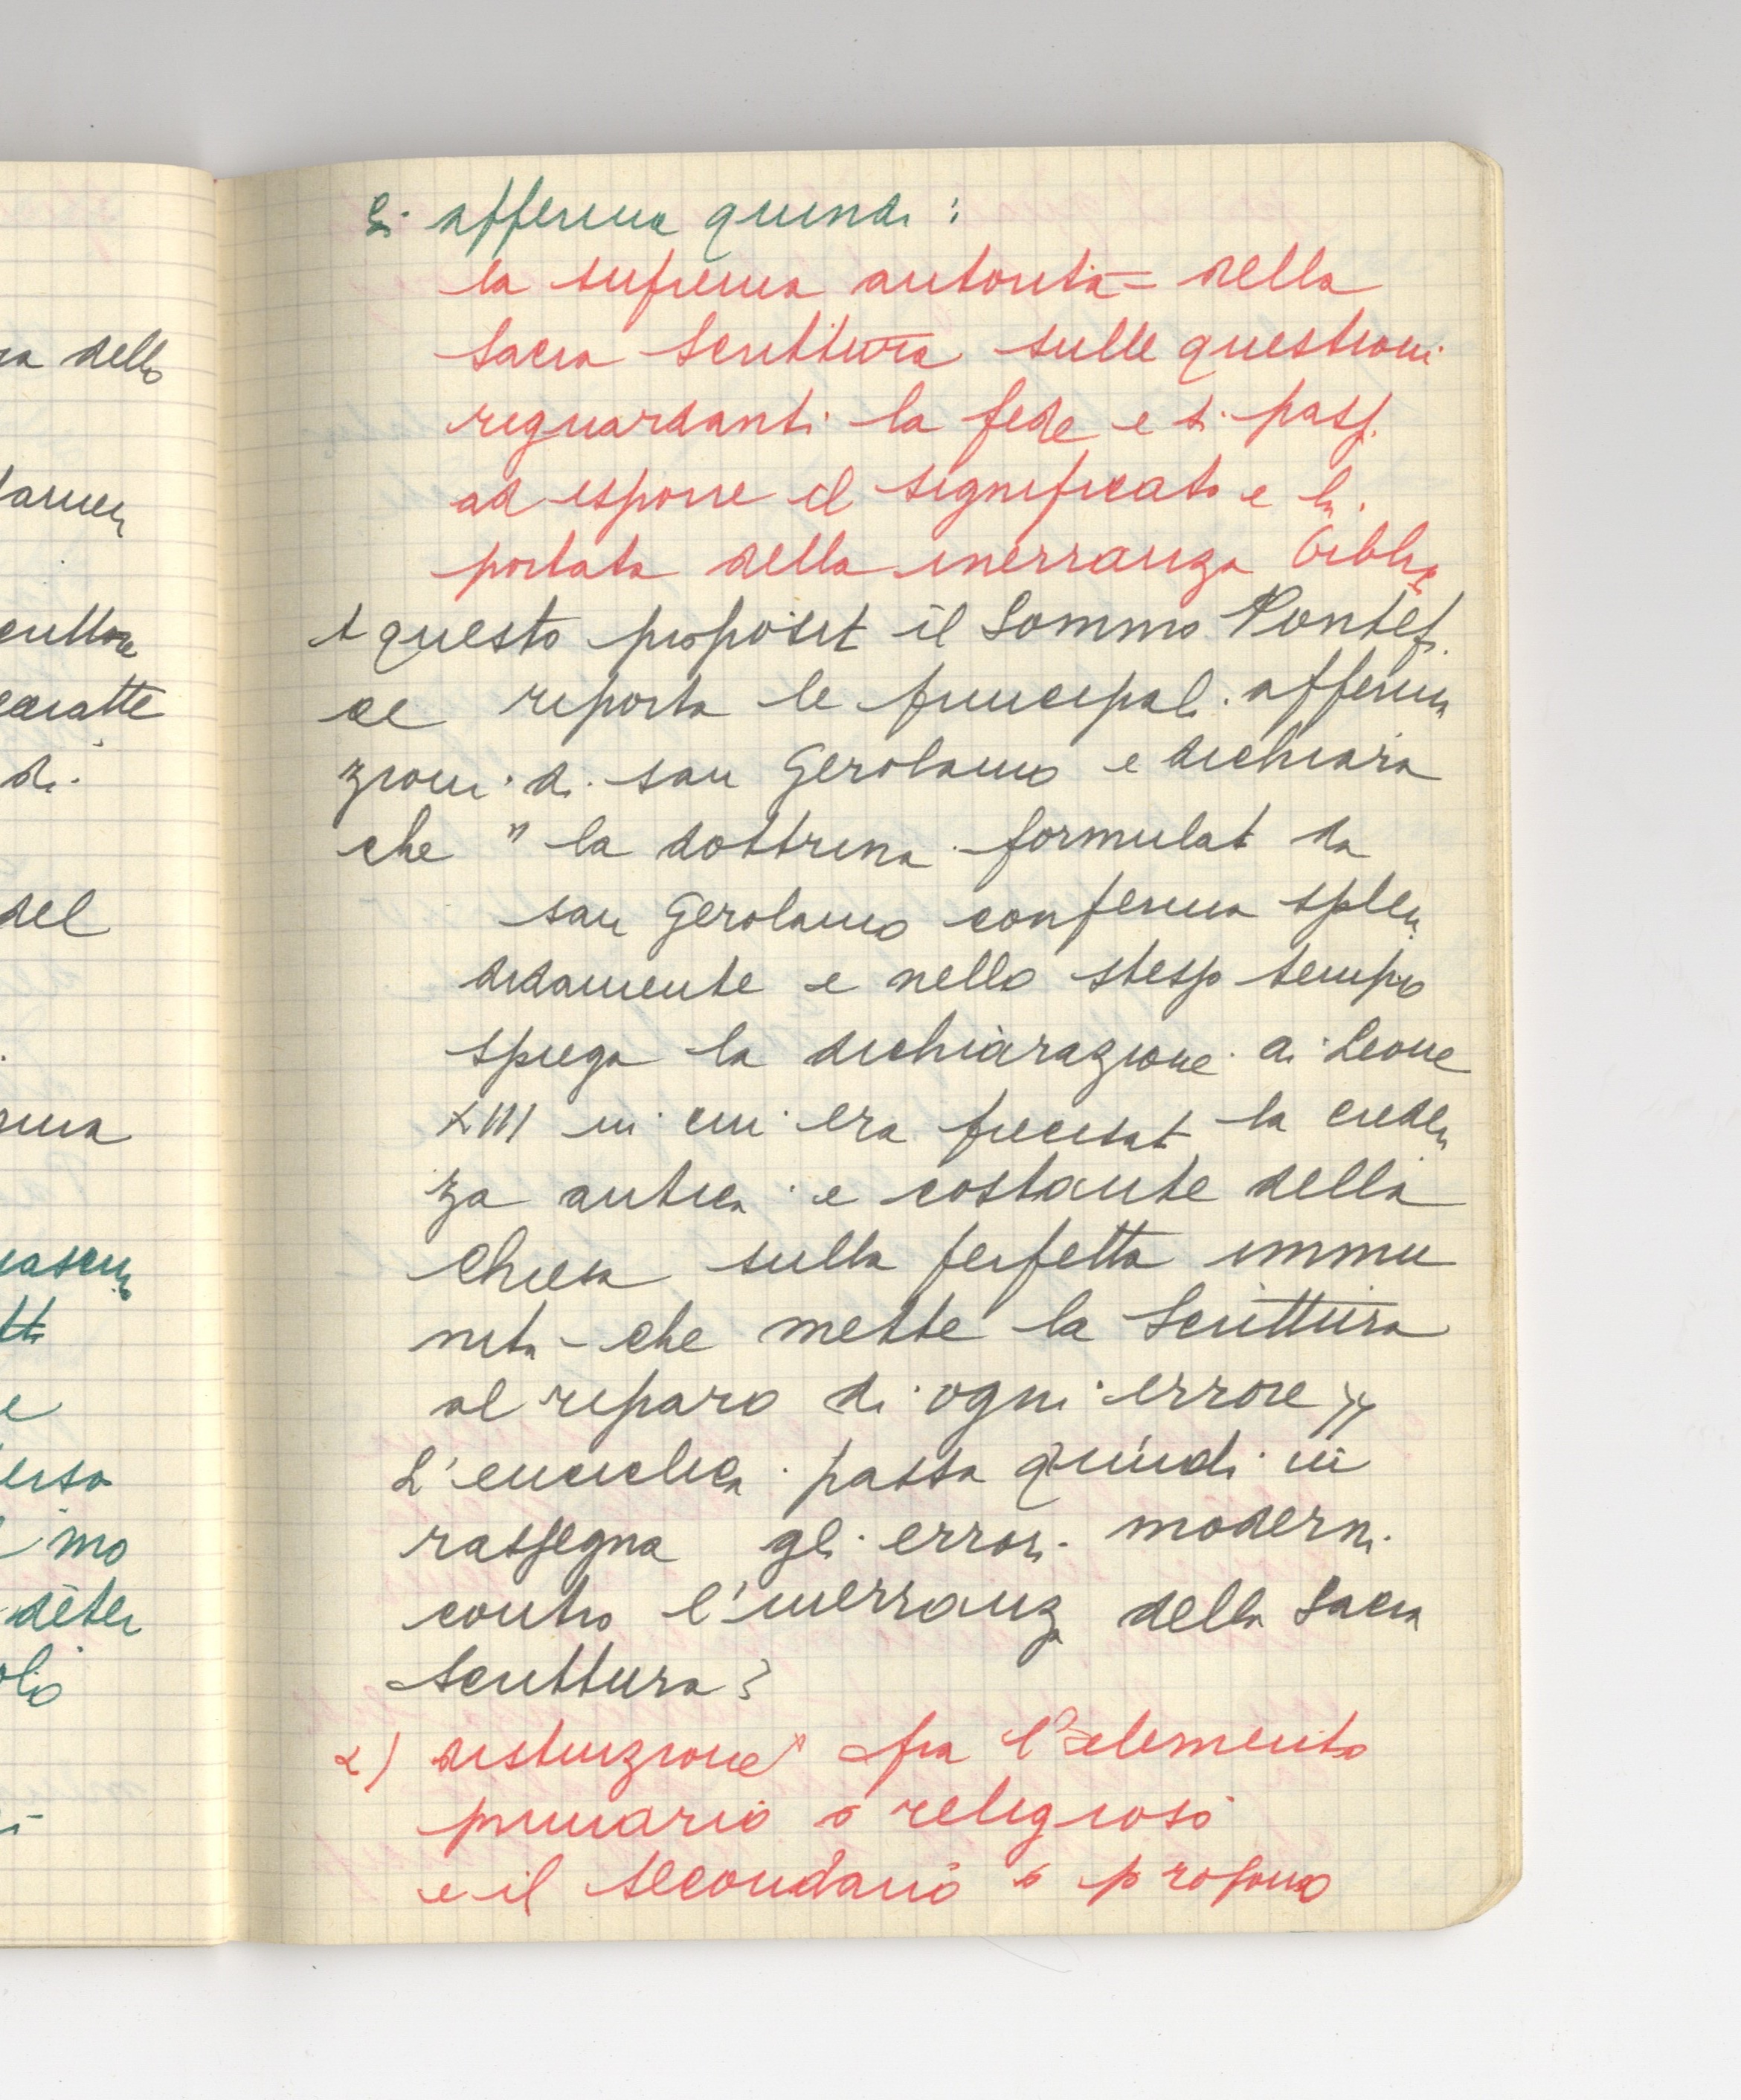 ra dello
scrittore
caratte
di
del
e
mo
Si afferma quindi:
la suprema autorità della
Sacra Scrittura sulle questioni
riguardanti la fede e si passa
ad esporre il significato e la
portata della inerranza biblica
A questo proposit il Sommo Pontefi
ce riporta le principali afferma
zioni di san Gerolamo e dichiara
che " la dottrina formulat da
san Gerolamo conferma splen
didamente e nello stesso tempo
spiega la dichiarazione di Leone
XIII in cui era precisat la creden
za antica e costante della
Chiesa sulla perfetta immu
nità che mette la Scrittura
al riparo di ogni errore »
L'enciclica passa quindi in
rassegna gli errori moderni
contro l'inerranza della Sacra
Scrittura:
1) distinzione fra l'elemento
primario o religioso
e il secondario o profano